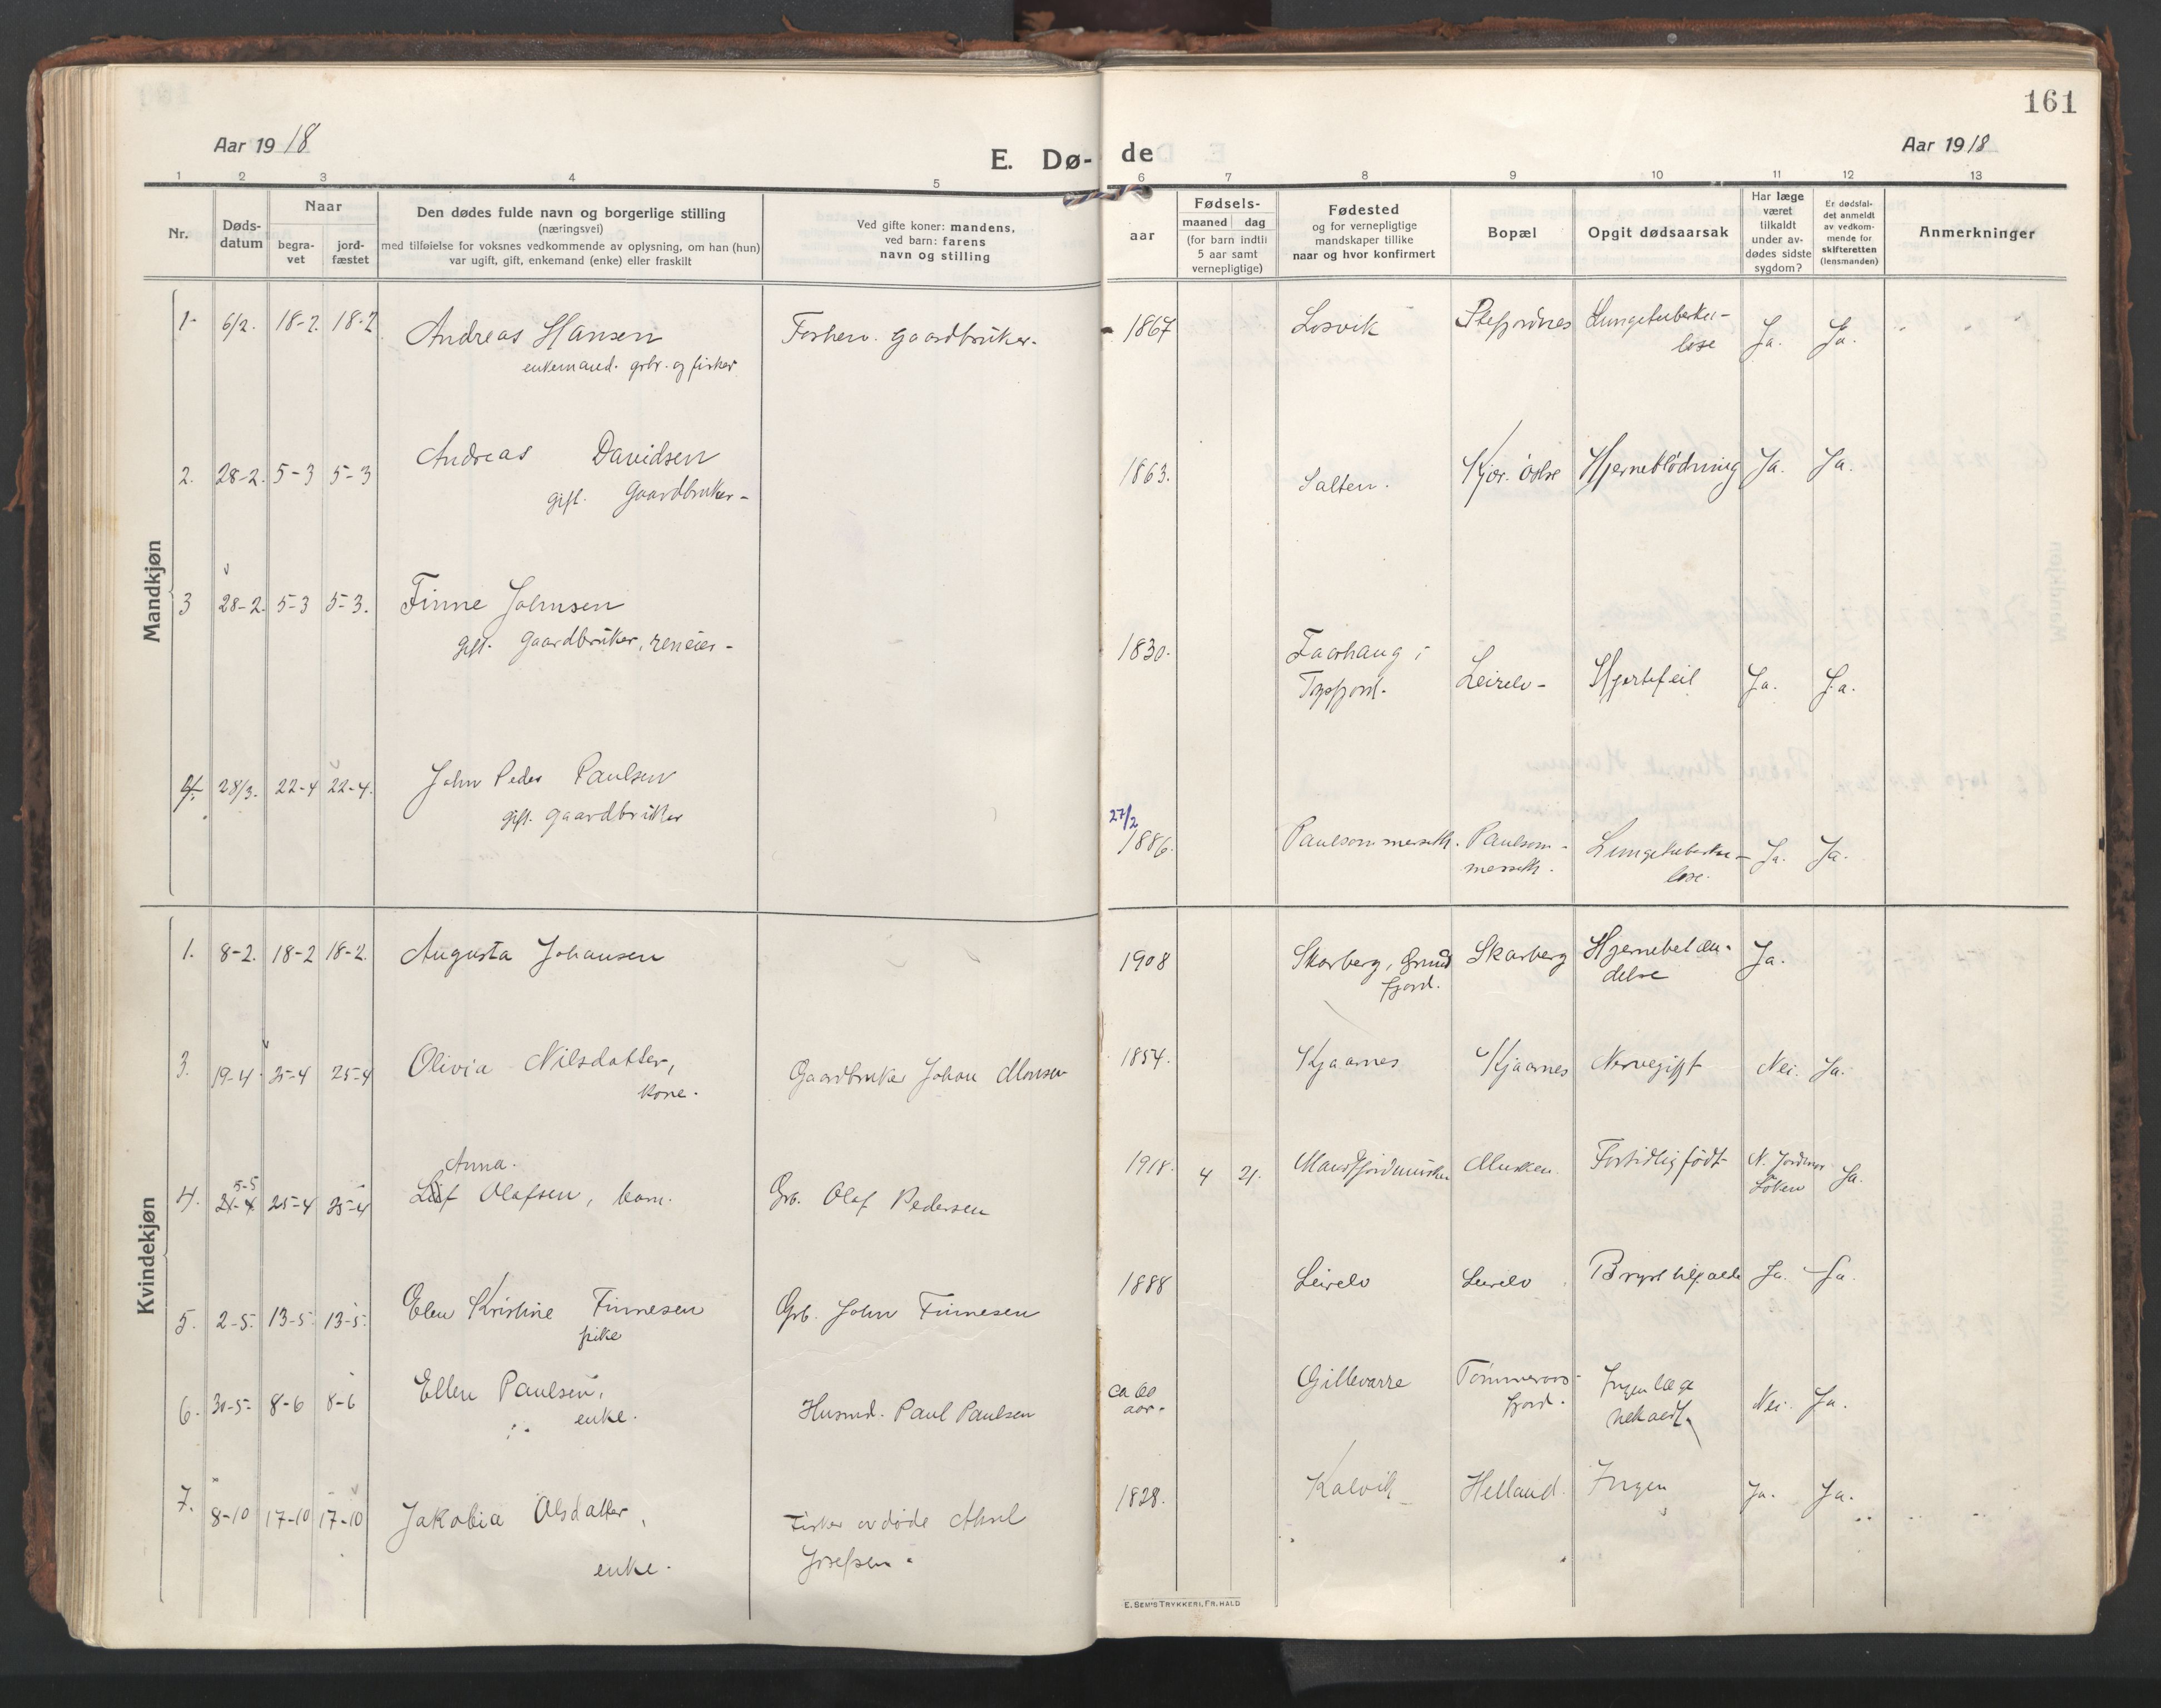 161
Aar 1918
E. Dø-
de
Aar 1918
1 2 3 4 5 6 7 8 9 10 11 12 13
Nr.
Døds-
datum
Naar
begra-
vet
jord-
fæstet
Den dødes fulde navn og borgerlige stilling
(næringsvei)
med tilføielse for voksnes vedkommende av oplysning, om han (hun)
var ugift, gift, enkemand (enke) eller fraskilt
Ved gifte koner: mandens,
ved barn: farens
navn og stilling
aar
Fødsels-
maaned dag
(for barn indtil
5 aar samt
vernepligtige)
Fødested
og for vernepligtige
mandskaper tillike
naar og hvor konfirmert
Bopæl
Opgit dødsaarsak
Har læge
været
tilkaldt
under av-
dødes sidste
sygdom?
Er dødsfal-
det anmeldt
av vedkom-
mende for
skifteretten
(lensmanden)
Anmerkninger
Mandkjøn
1- 6/2. 18-2. 18-2 Andreas Hansen Forhenv. gaardbruker. 1867 Losvik Lungetuberku-
enkemand. grbr. og fisker
lose Ja. Ja.
2. 28-2. 5-3 5-3 Andreas Davidsen 1863. Salten. Kjær. Østre Hjerneblødning Ja. Ja.
gift. Gaardbruker-
3 28-2. 5-3 5-3. Finne Johnsen
gift. gaardbruker, reneier- 1830. Faarhaug i
Leirelv- Hjertefeil Ja. Ja.
4. 28/3. 22-4 22-4. John Peder Paulsen
gift. gaardbruker
27/2
1886. Paulsommerseth. Paulsom-
merseth. Lungetuberku-
lose. Ja. Ja.
Kvindekjøn
1. 8-2. 18-2 18-2. Augusta Johansen 1908 Skarberg, Grund
fjord. Skarberg Hjernebetæn-
delse Ja.
3. 19-4. 25-4 25-4 Olivia Nilsdatter,
kone. Gaardbruker Johan Monsen 1854. Kjaarnes Kjaarnes Nervegigt Nei. Ja.
Anna.
4. 5-5
21-4 25-4 25-4 Olafsen, barn. Grb. Olaf Pedersen 1918. 4 21. Musken. Fortidlig født N. Jordmor
Løken Ja.
5. 2-5. 13-5. 13-5. Elen Kristine Finnesen
pike Grb. John Finnesen 1888 Leirelv Leirelv Ja. Ja.
6. 30-5- 8-6 8-6 Ellen Paulsen,
enke. Husmd. Paul Paulsen ca 60
aar. Gillevarre Tømmeraas-
fjord. Ingen læge
Nei. Ja.
7. 8-10 17-10 17-10 Jakobia Olsdatter,
enke. Fisker avdøde Aksel
Josefsen. 1828. Kalvik Helland. Ingen Ja. Ja.
E. SEM'S TRYKKERI, FR. HALD